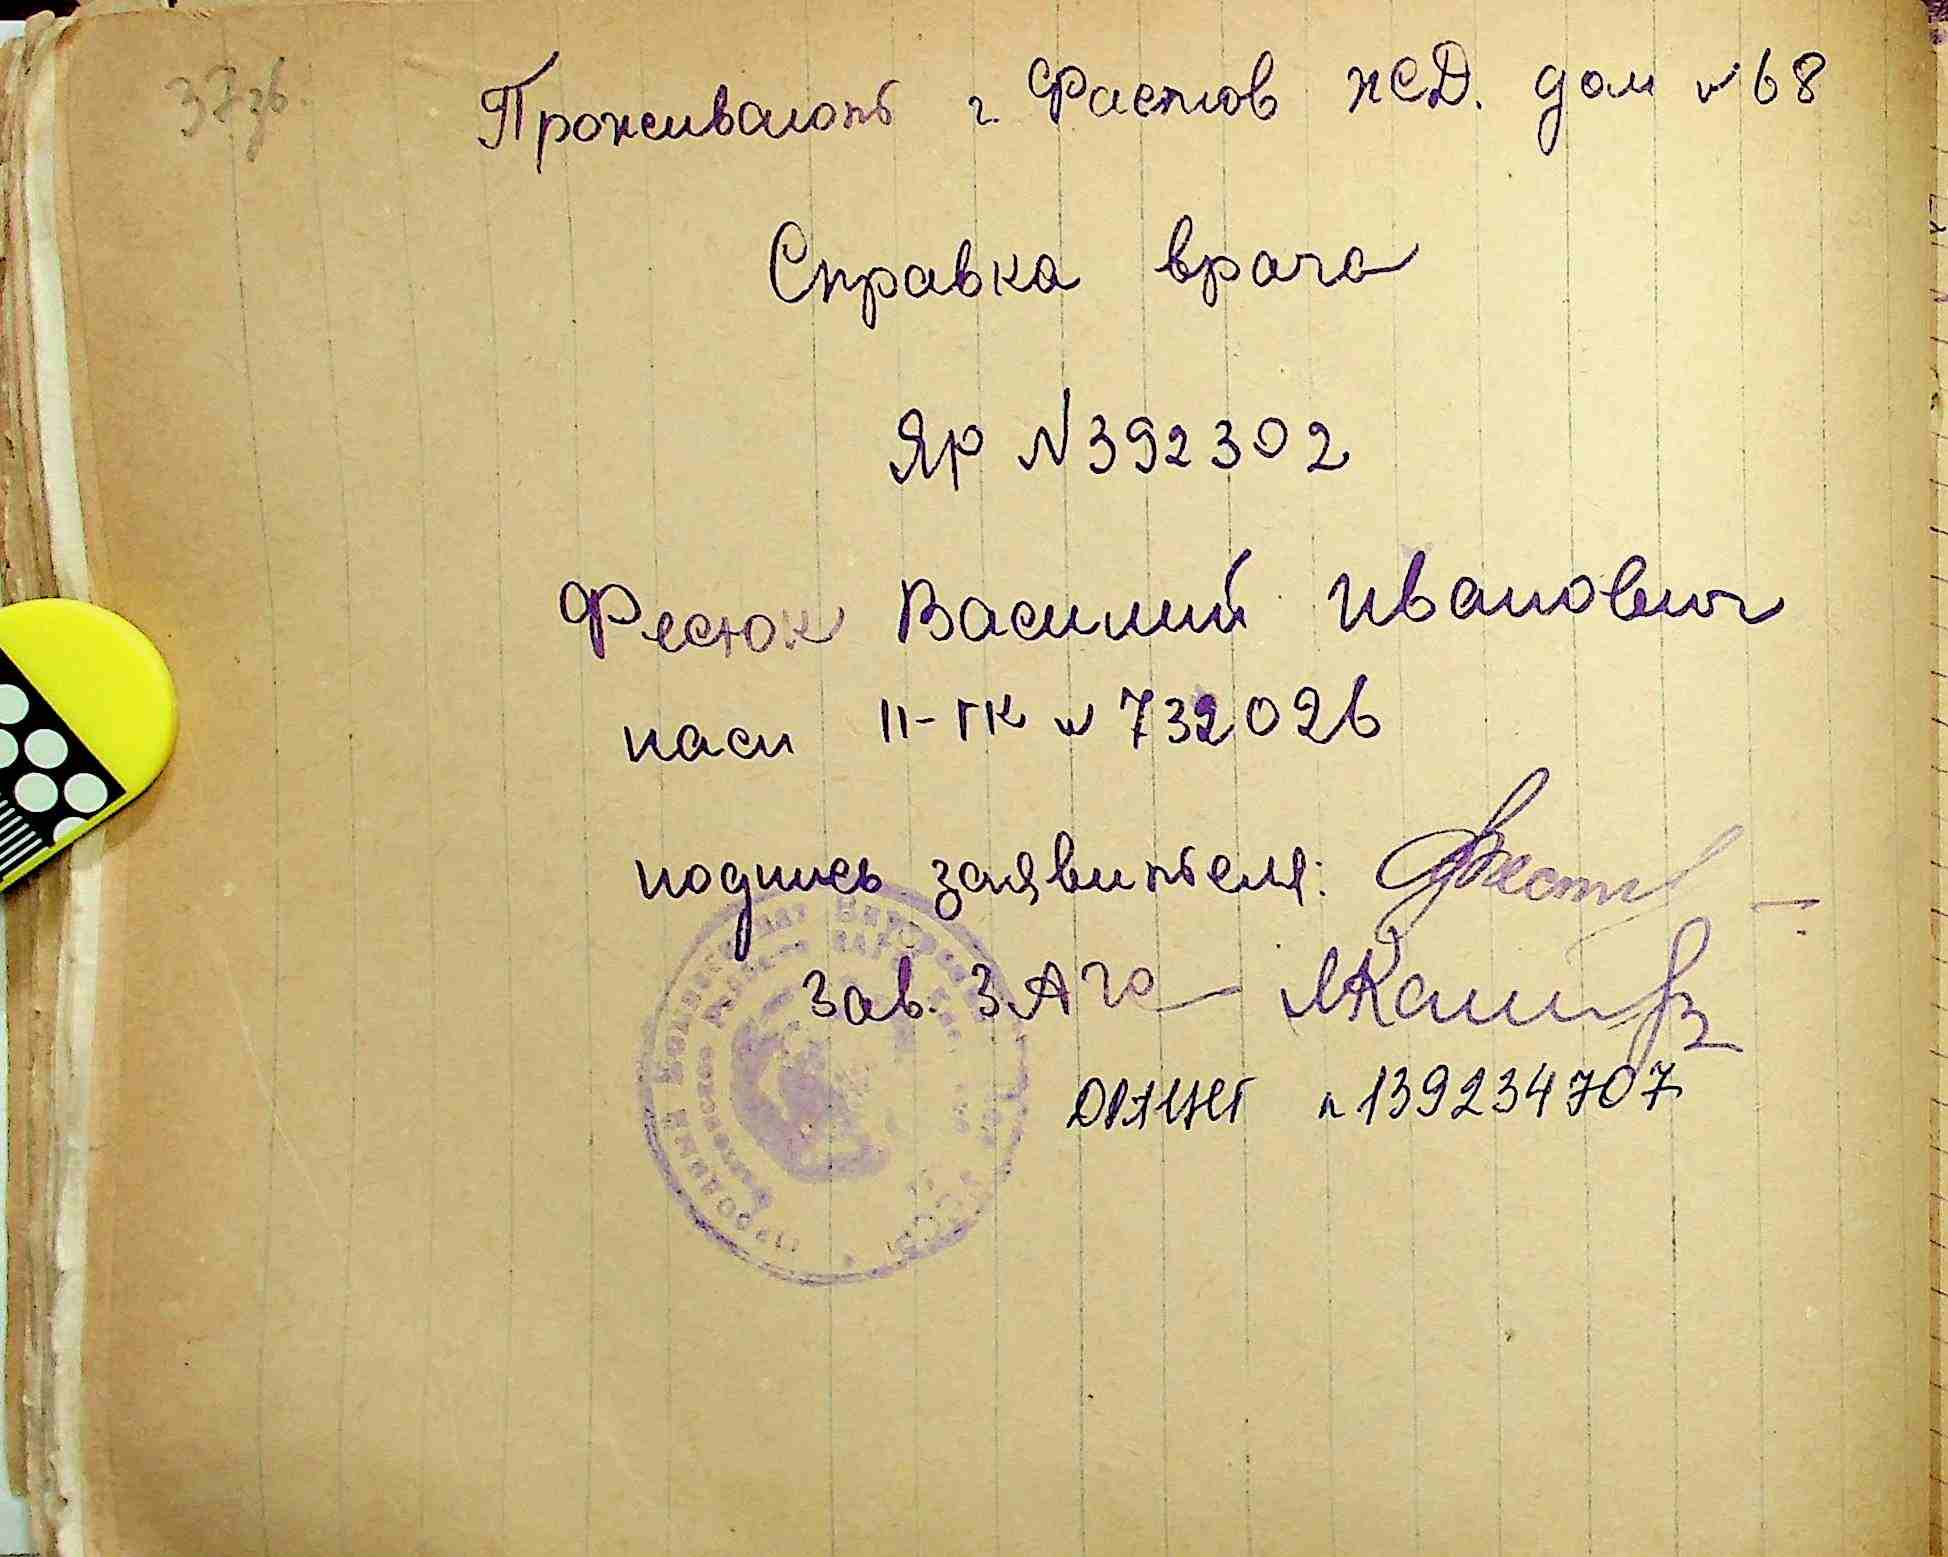 37зв.
Проживают г. Фастов ЖД. дом №68
Справка врача
ЯР №392302
Фестюк Василий Иванович
пасп II-ГК № 732026
подпись заявителя:
Зав. ЗАГС
№139234707